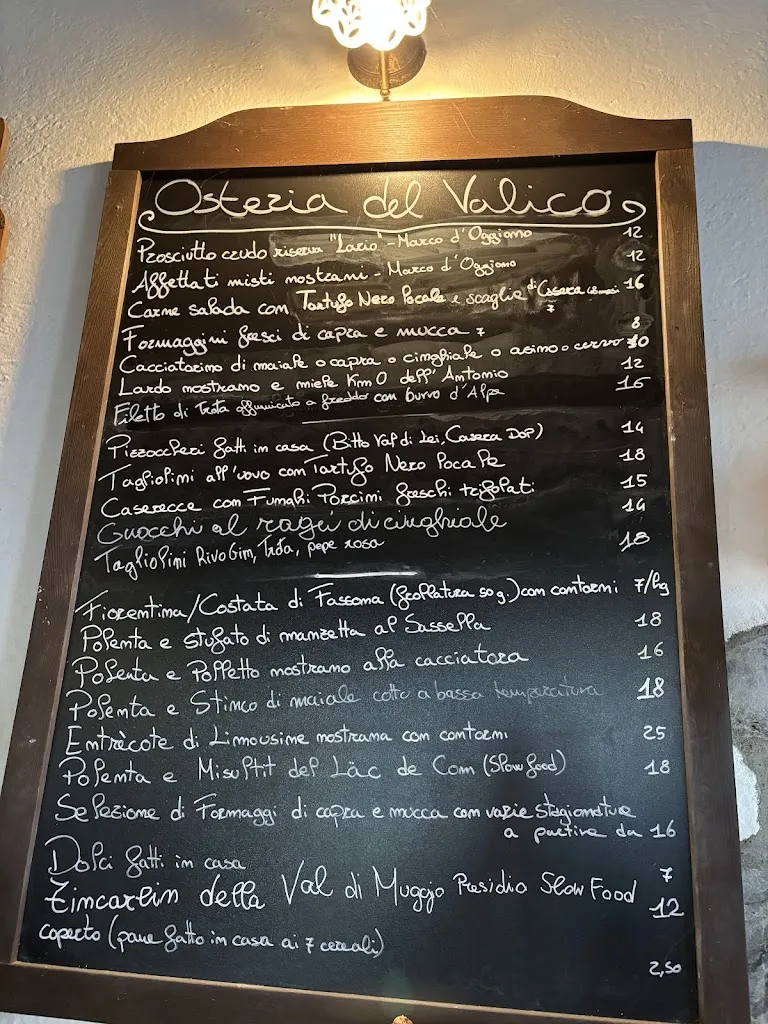 Osteria del Valico
Prosciutto crudo riserva "Lario" - Marco d'Oggiono 12
Affettati misti nostrani - Marco d'Oggiono 12
Carne salada con Tartufo Nero Locale e scaglie di Casera 16
Formaggini freschi di capra e mucca 8
Cacciatorino di maiale o capra o cinghiale o asino o cervo 10
Lardo nostrano e miele Km 0 dell'Antonio 12
Filetto di Trota affumicato a freddo con burro d'Alpe 16
Pizzoccheri fatti in casa (Bitto Val di Lei, Casera DOP) 14
Tagliolini all'uovo con Tartufo Nero Locale 18
Caserecce con Funghi Porcini freschi trifolati 15
Gnocchi al ragù di cinghiale 14
Tagliolini RivoGin, Trota, pepe rosa 18
Fiorentina/Costata di Fassona (frollatura 50 g.) con contorni 7/hg
Polenta e stufato di manzetta al Sassella 18
Polenta e Polletto nostrano alla cacciatora 16
Polenta e Stinco di maiale cotto a bassa temperatura 18
Entrècote di Limousine nostrana con contorni 25
Polenta e Misultit del Läc de Com (Slow food) 18
Selezione di Formaggi di capra e mucca con varie stagionature
a partire da 16
Dolci fatti in casa 7
Zincarlin della Val di Muggio Presidio Slow Food 12
coperto (pane fatto in casa ai 7 cereali)
2,50